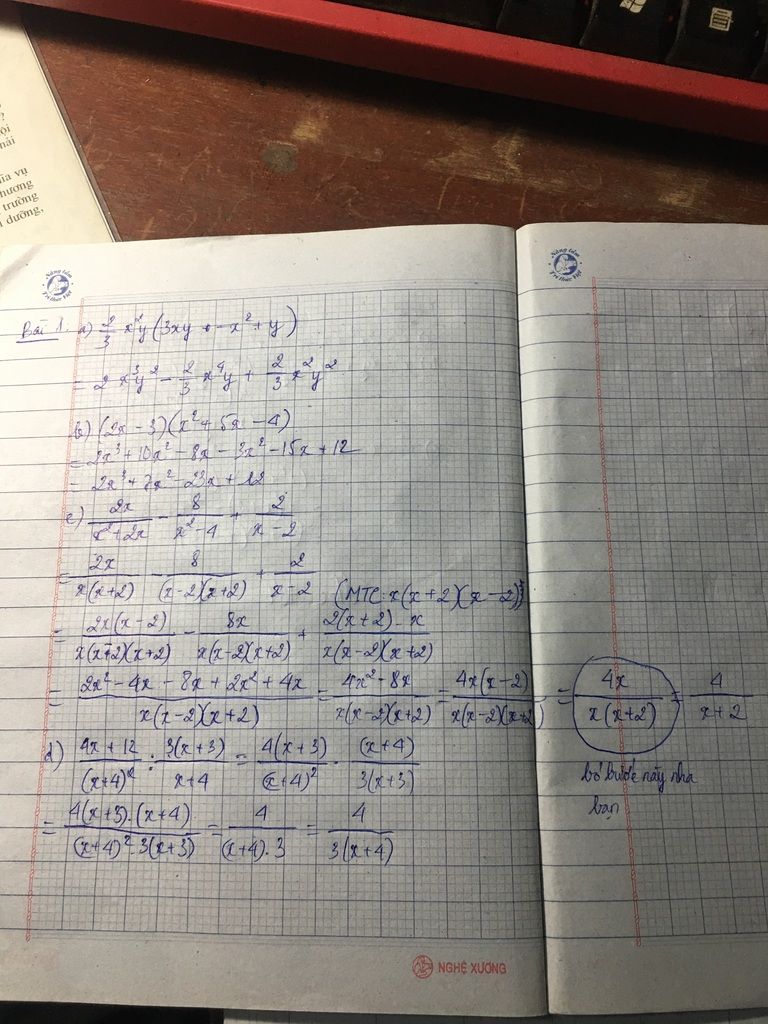 ?
ội
nải
ĩa vụ
hương
trường
i dưỡng,
Nâng tầm
Tri thức Việt
Nâng tầm
Tri thức Việt
Bài 1. a) 2/3 x²y(3xy - x² + y)
= 2x³y² - 2/3 x⁴y + 2/3 x²y²
b) (2x - 3)(x² + 5x - 4)
= 2x³ + 10x² - 8x - 3x² - 15x + 12
= 2x³ + 7x² - 23x + 12
c) 2x/(x² + 2x) - 8/(x² - 4) + 2/(x - 2)
= 2x/(x(x+2)) - 8/((x-2)(x+2)) + 2/(x-2) (MTC: x(x+2)(x-2))
= 2x(x-2)/(x(x+2)(x+2)) - 8x/(x(x-2)(x+2)) + 2(x+2).x/(x(x-2)(x+2))
= (2x² - 4x - 8x + 2x² + 4x)/(x(x-2)(x+2)) = (4x² - 8x)/(x(x-2)(x+2)) = 4x(x-2)/(x(x-2)(x+2)) = 4x/(x(x+2)) = 4/(x+2)
bỏ bước này nha
bạn
d) (4x + 12)/(x+4)² : 3(x+3)/(x+4) = 4(x+3)/(x+4)² . (x+4)/(3(x+3))
= 4(x+3).(x+4)/((x+4)².3(x+3)) = 4/((x+4).3) = 4/(3(x+4))
NGHỆ XƯƠNG